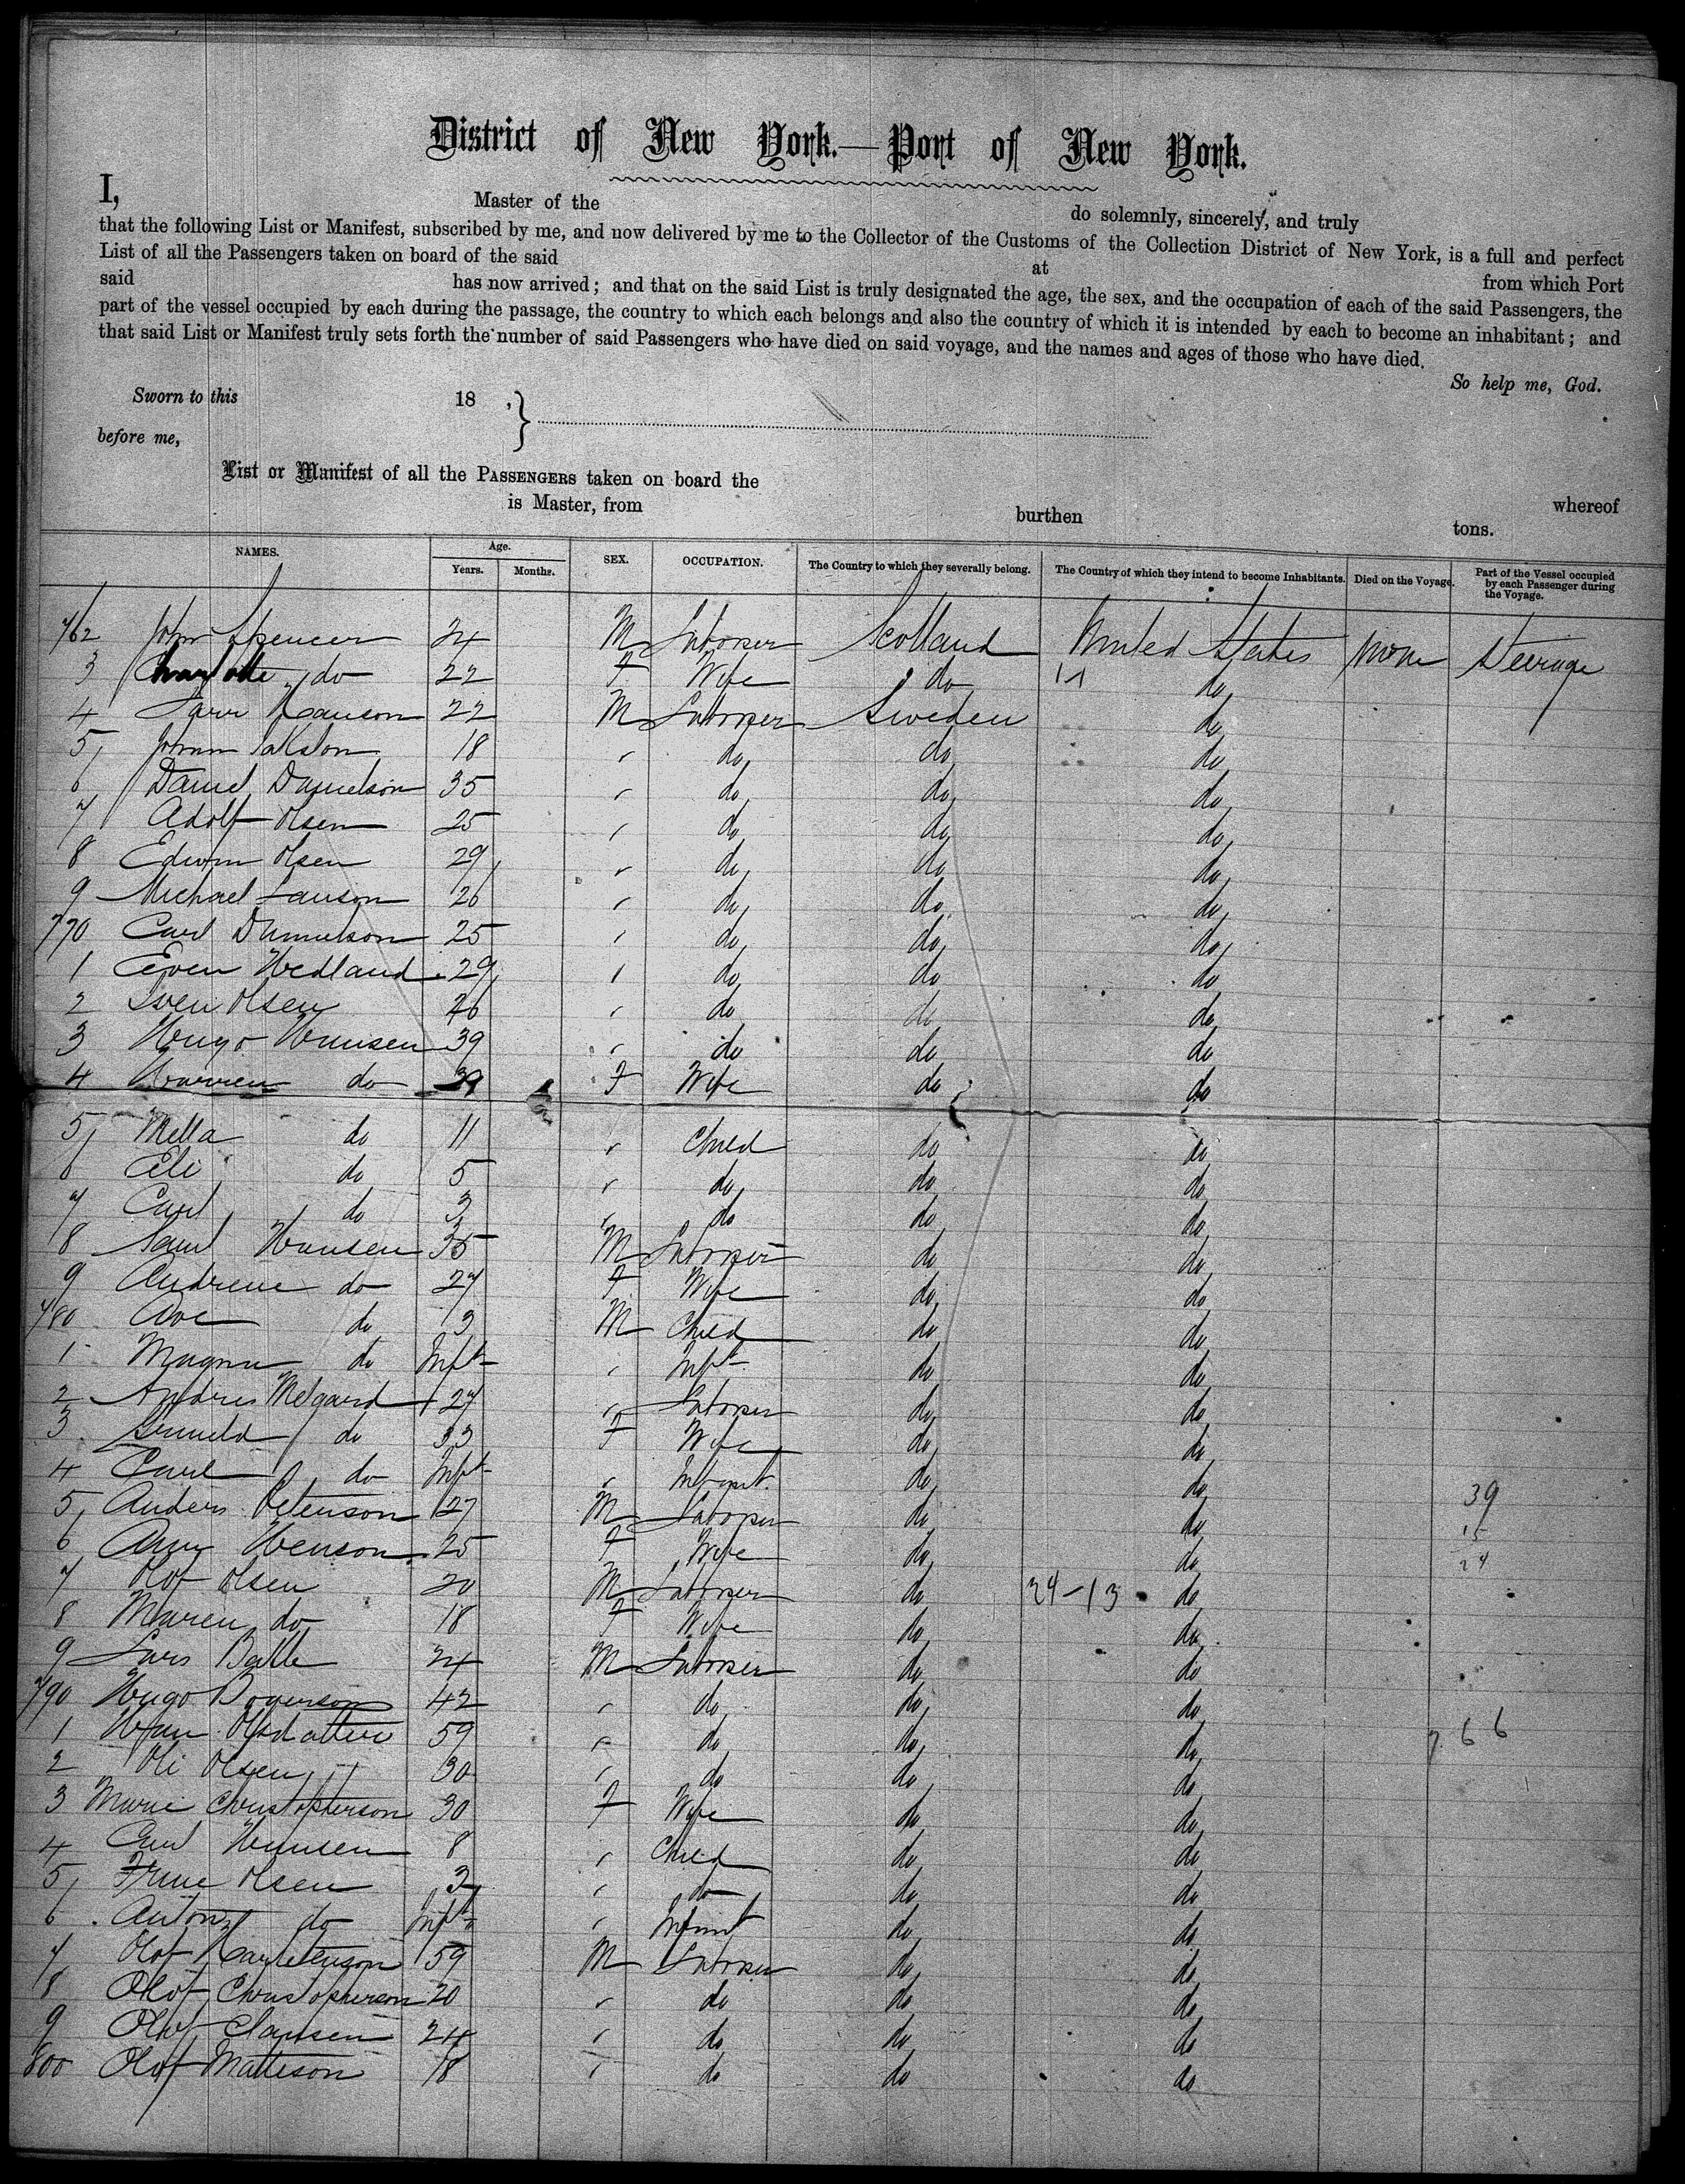 District of New York.—Port of New York.
I, Master of the do solemnly, sincerely, and truly
that the following List or Manifest, subscribed by me, and now delivered by me to the Collector of the Customs of the Collection District of New York, is a full and perfect
List of all the Passengers taken on board of the said at from which Port
said has now arrived; and that on the said List is truly designated the age, the sex, and the occupation of each of the said Passengers, the
part of the vessel occupied by each during the passage, the country to which each belongs and also the country of which it is intended by each to become an inhabitant; and
that said List or Manifest truly sets forth the number of said Passengers who have died on said voyage, and the names and ages of those who have died.
So help me, God.
Sworn to this 18 ,
before me,
List or Manifest of all the PASSENGERS taken on board the whereof
is Master, from burthen tons.
NAMES. Age. Years. Months. SEX. OCCUPATION. The Country to which they severally belong. The Country of which they intend to become Inhabitants. Died on the Voyage. Part of the Vessel occupied by each Passenger during the Voyage.
762 John Spencer 24 M Laborer Scotland United States none Steerage
3 Charlotte do 22 F Wife do do
4 22 M Laborer Sweden do
5 18 do do do
6 Daniel Danielson 35 do do do
7 Adolf Olsen 25 do do do
8 Edwin Olsen 29 do do do
9 Michael 26 do do do
770 Carl 25 do do do
1 Even Hedland 29 do do do
2 Sven Olsen 26 do do do
3 Hugo Hansen 39 do do do
4 do F Wife do do
5 do 11 Child do do
6 Eli do 5 do do do
7 Carl do 3 do do do
8 Hansen 35 M Laborer do do
9 Andrene do 27 F Wife do do
780 do 3 M Child do do
1 do Inft Inft do do
2 Andres Melgard 27 Laborer do do
3 do 33 F Wife do do
4 Carl do Inft Infant do do
5 Anders Petenson 27 M Laborer do do 39
6 Henson 25 F Wife do do 15 24
7 Olof Olsen 20 M Laborer do 24-13 do
8 Maren do 18 F Wife do do
9 Lars 24 M Laborer do do
790 Hugo 42 do do do
1 59 do do do 766
2 Oli Olsen 30 do do do
3 Marie Christopherson 30 F Wife do do
4 Hansen 8 Child do do
5 Olsen 3 do do do
6 Anton do Inft Infant do do
7 Olof 59 M Laborer do do
8 Olof Christopherson 20 do do do
9 Olof Clausen 24 do do do
800 Olof Matteson 18 do do do